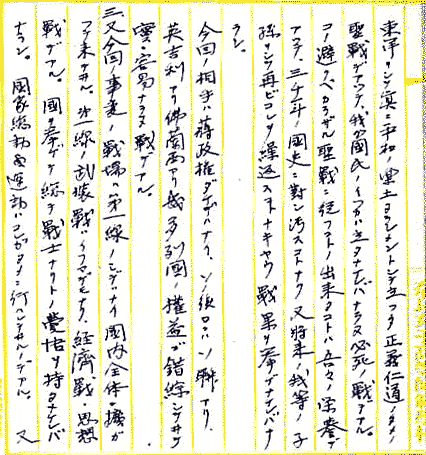 東洋ヲシテ真ニ平和ノ楽土タラシメントシテ立ツタ正義仁道ノタメノ
聖戦デアツテ、我ガ国民トイフガ立タナケレバナラヌ必死ノ戦デアル。
コノ避クベカラザル聖戦ニ従フコトノ出来タコトハ吾々ノ栄誉デ
アツテ、三千年ノ国史ニ対シ汚スコトナク又将来ノ我等ノ子
孫ヲシテ再ビコレヲ繰返スコトナキヤウ戦果ヲ挙ゲナケレバナ
ラン。
今回ノ相手ハ蒋政権ダケデハナク、ソノ後ロニハソ聯アリ、
英吉利アリ佛蘭西アリ幾多列国ノ権益ガ錯綜シテ
実ニ容易ナラヌ戦デアル。
三、又今回ノ事変ノ戦場ハ第一線ノミデナイ国内全体ニ擴ガ
ツテ来テヰル。第一線ノ武装戦ハイフマデモナク、経済戦、思想
戦デアル。国ヲ挙ゲテ総テ戦士ナリトノ覚悟ヲ持タナケレバ
ナラン。国家総動員運動ハコレガタメニ行ハレテヰルノデアル。又